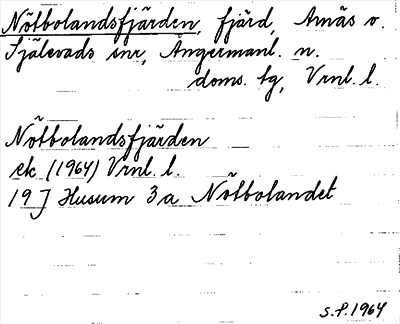 Nötbolandsfjärden, fjärd, Arnäs o.
Själevads snr, Ångermanl. n.
doms. tg, Vrnl. l.
Nötbolandsfjärden
ek (1964) Vrnl. l.
19 J Husum 3a Nötbolandet
S.P. 1964